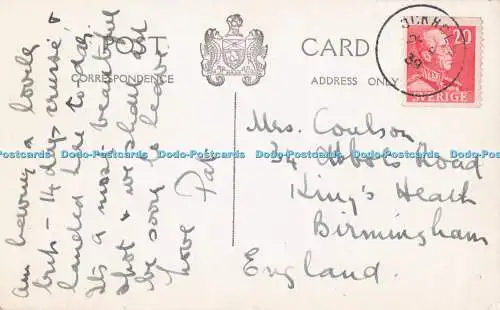 POST CARD
CORRESPONDENCE
ADDRESS ONLY
am having a lovely
trip - 14 days cruise &
landed here to-day
It's a most beautiful
spot & we shall not
be sorry to leave
love Pat
20
SVERIGE
Mrs. Coulson
34 Road
King's Heath
Birmingham
England.
Dodo-Postcards Dodo-Postcards Dodo-Postcards Dodo-Postcards Dodo-Postcards